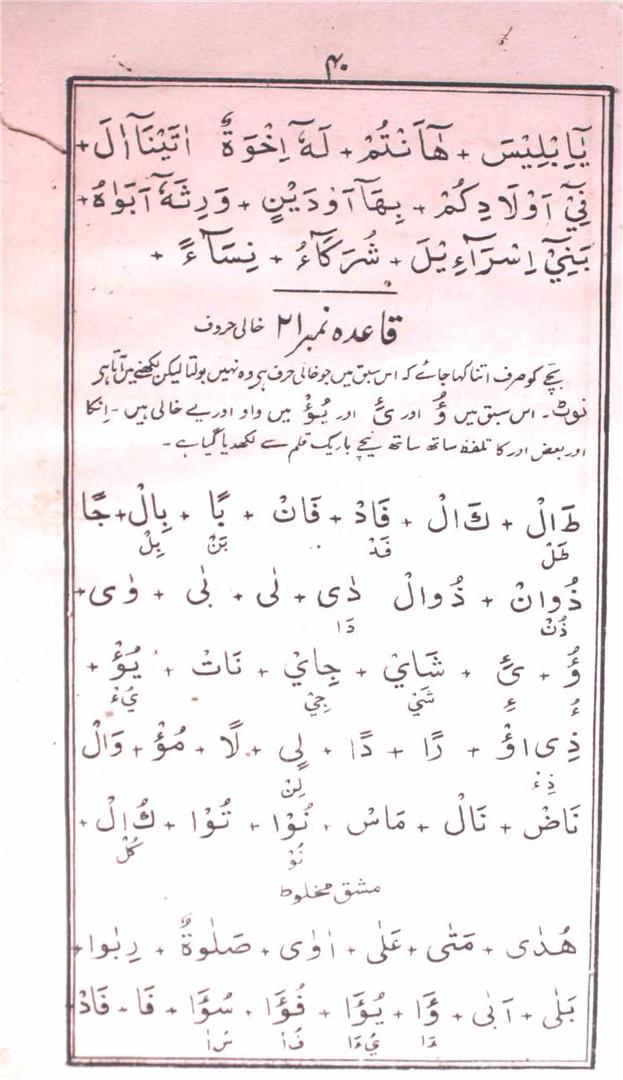 ۴۰
يٰٓاِبْلِيْسَ + هٰٓاَنْتُمْ + لَهٗٓ اِخْوَةٌ اٰتَيْنَآ اٰلَ +
فِيْٓ اَوْلَادِكُمْ + بِهَآ اَوْدَيْنٍ + وَرِثَهٗٓ اَبَوٰهُ +
بَنِيْٓ اِسْرَآءِيْلَ + شُرَكَآءُ + نِسَآءً +
قاعدہ نمبر ۲۱ خالی حروف
بچے کو صرف اتنا کہا جائے کہ اس سبق میں جو خالی حرف ہو وہ نہیں بولتا لیکن لکھنے میں آتا ہے
نوٹ۔ اس سبق میں ؤُ اور ئِ اور يُؤْ میں واو اور یے خالی ہیں۔ انکا
اور بعض اور کا تلفظ ساتھ ساتھ نیچے باریک قلم سے لکھدیا گیا ہے۔
طَالْ + كَالْ + فَادْ + فَانْ + بًا + بِالْ + جًا
طَلْ فَدْ بَنْ بِلْ
ذُوانْ + ذُوالْ ذٰى + نٰى + بٰى + وٰى +
ذُنْ ذَا
ؤُ + ئِ + شَايْ + جِايْ + نَاتْ + يُؤْ +
ءُ ءِ شَيْ جِيْ يُءْ
ذِى اؤْ + رًا + دًا + لٍى + لًا + مُؤْ + وَالْ
ذِءْ لِنْ
نَاضْ + نَالْ + مَاسْ + نُوْا + تُوْا + كُالْ +
نُوْ كُلْ
مشق مخلوط
هُدٰى + مَتٰى + عَلٰى + اٰوٰى + صَلٰوةٌ + رِبٰوا +
بَلٰى + اَبٰى + ؤَا + يُؤَا + فُؤَا + سُؤَا + فَا + فَادْ
ءَا يُءَا فُءَا سُءَا